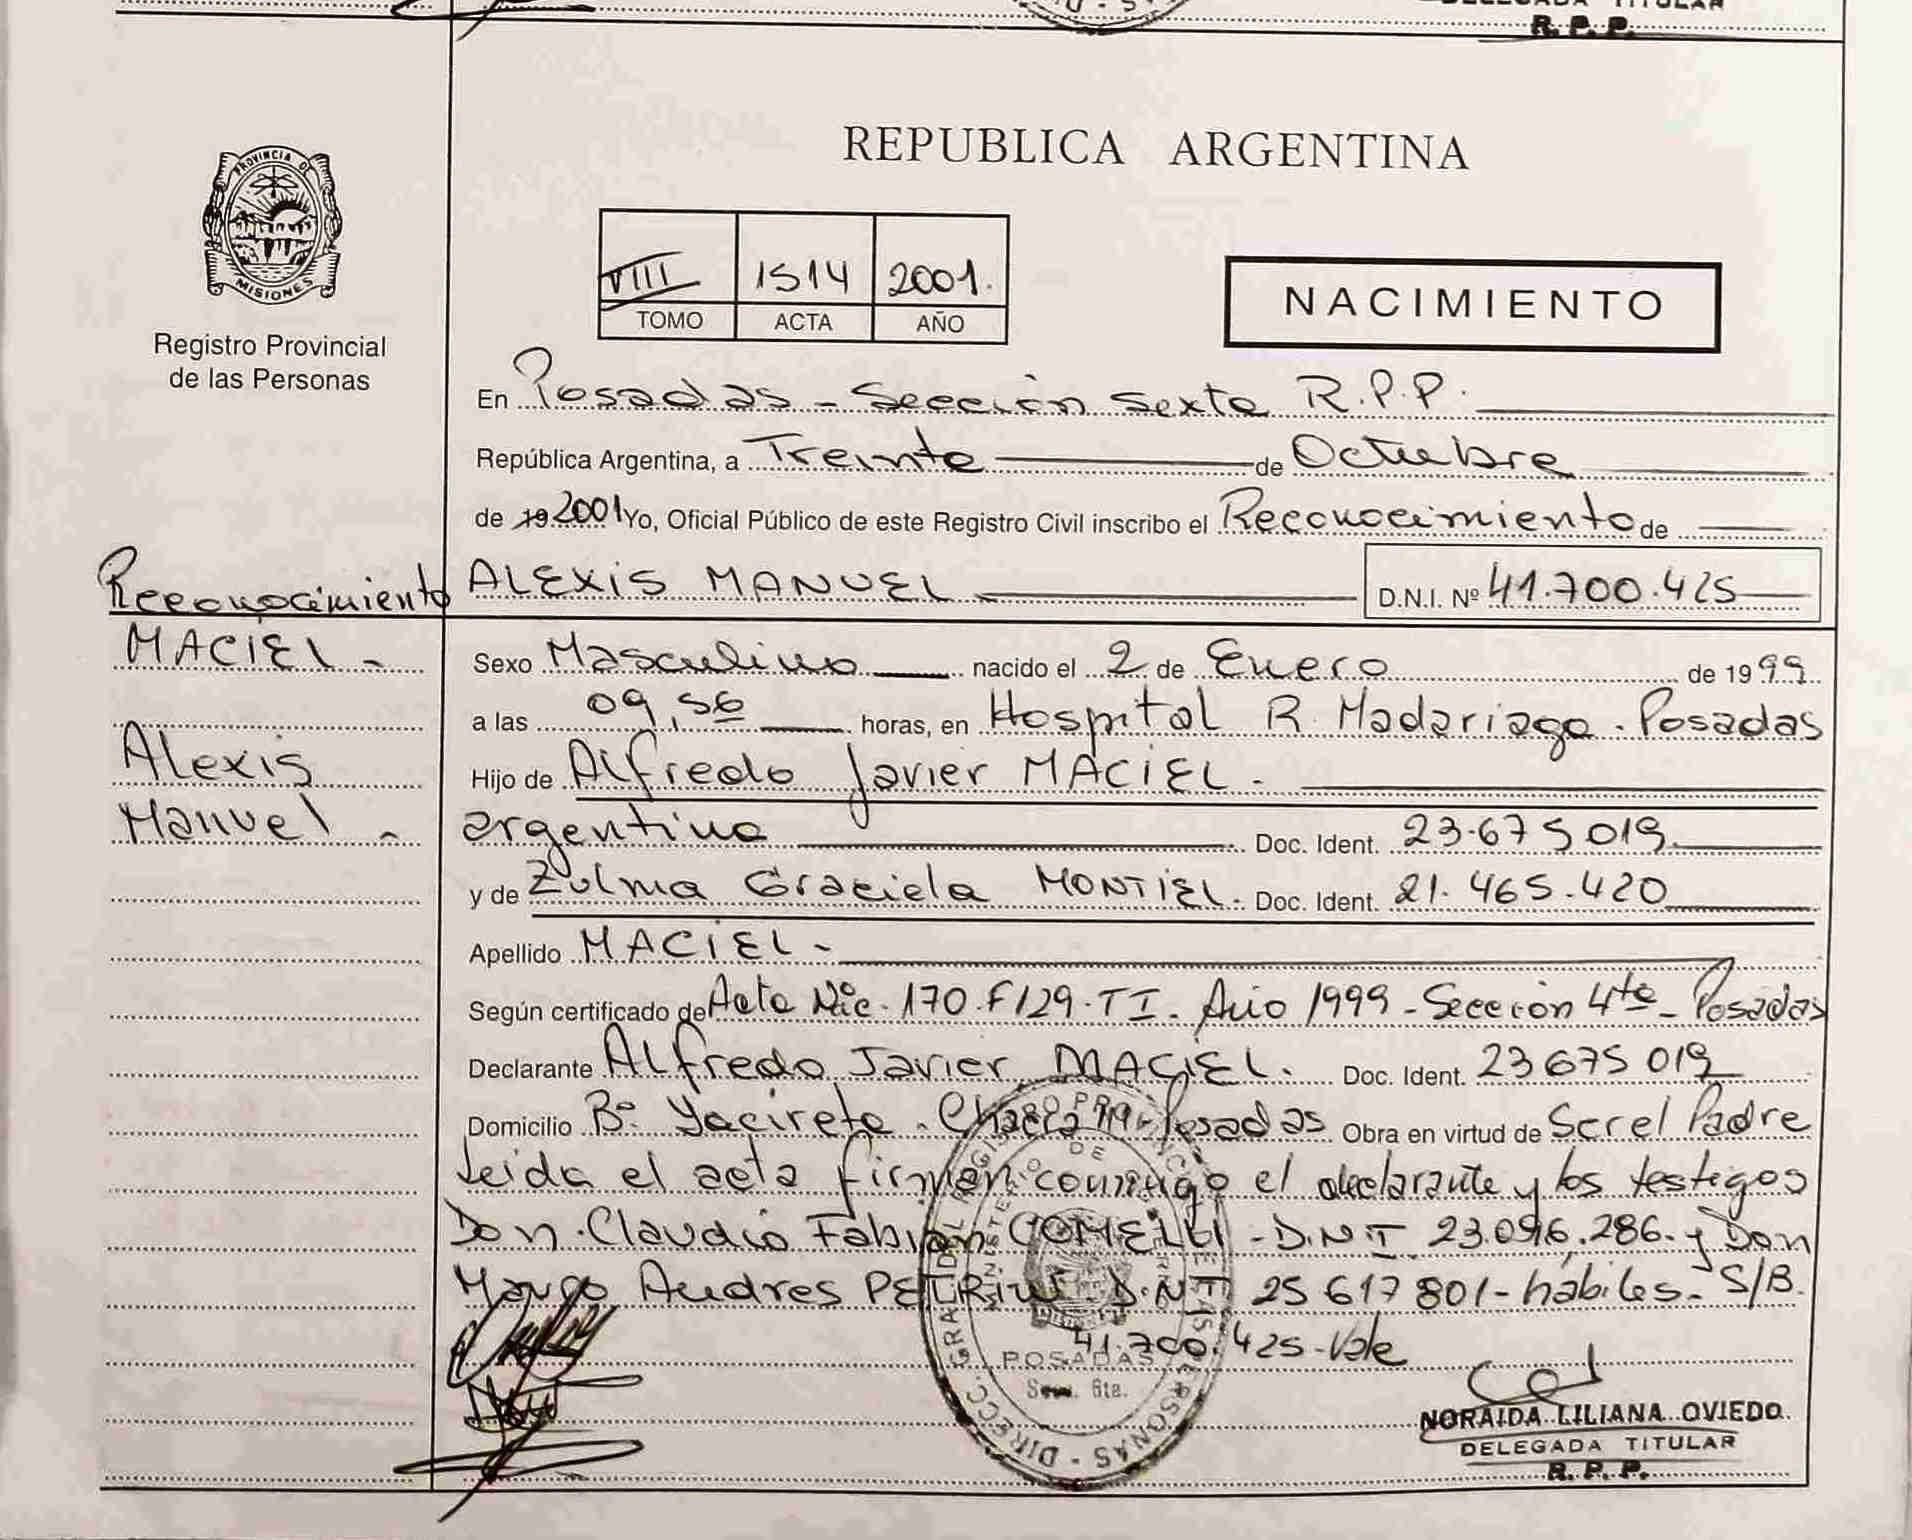 DELEGADA TITULAR
R. P. P.
PROVINCIA DE
MISIONES
Registro Provincial
de las Personas
REPUBLICA ARGENTINA
VIII 1514 2001.
TOMO ACTA AÑO
NACIMIENTO
En Posadas - Sección Sexta R.P.P.
República Argentina, a Treinta de Octubre
de 19 2001 Yo, Oficial Público de este Registro Civil inscribo el Reconocimiento de
ALEXIS MANUEL D.N.I. Nº 41.700.425
Reconocimiento
MACIEL -
Alexis
Manuel -
Sexo Masculino nacido el 2 de Enero de 1999
a las 09,56 horas, en Hospital R. Madariaga. Posadas
Hijo de Alfredo Javier MACIEL -
argentino Doc. Ident. 23.675.019
y de Zulma Graciela MONTIEL. Doc. Ident. 21.465.420
Apellido MACIEL -
Según certificado de Acta Nac. 170.F129.TI. Año 1999 - Sección 4ta - Posadas
Declarante Alfredo Javier MACIEL. Doc. Ident. 23675019
Domicilio Bº Yacireta. Posadas Obra en virtud de Ser el Padre
Leida el acta firman conmigo el declarante y los testigos
Don Claudio Fabian COMELLI - D.N.I. 23.096.286. y Don
Andres D.N.I 25617801 - hábiles - S/B.
41.700.425-Vale
POSADAS
Secc. 6ta.
NORAIDA LILIANA OVIEDO
DELEGADA TITULAR
R. P. P.